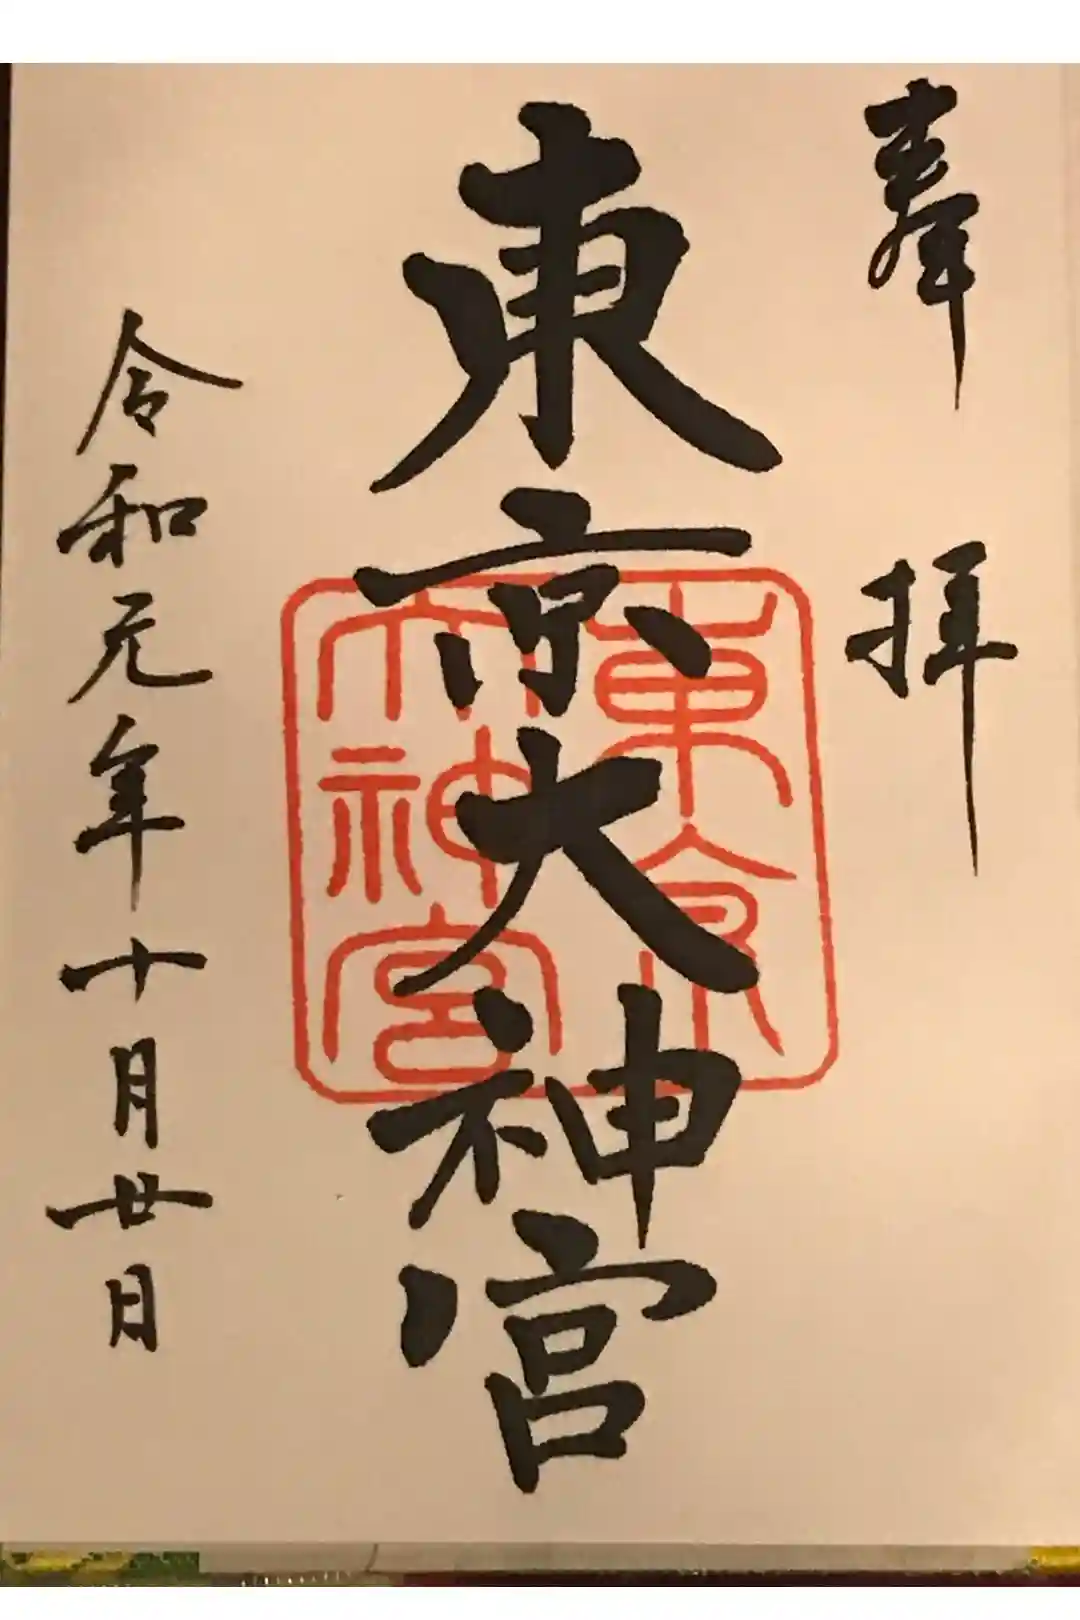 奉拝
東京大神宮
東京
大神宮
令和元年十月廿日